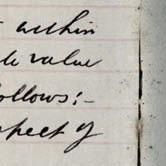 within
value
follows:-
respect of